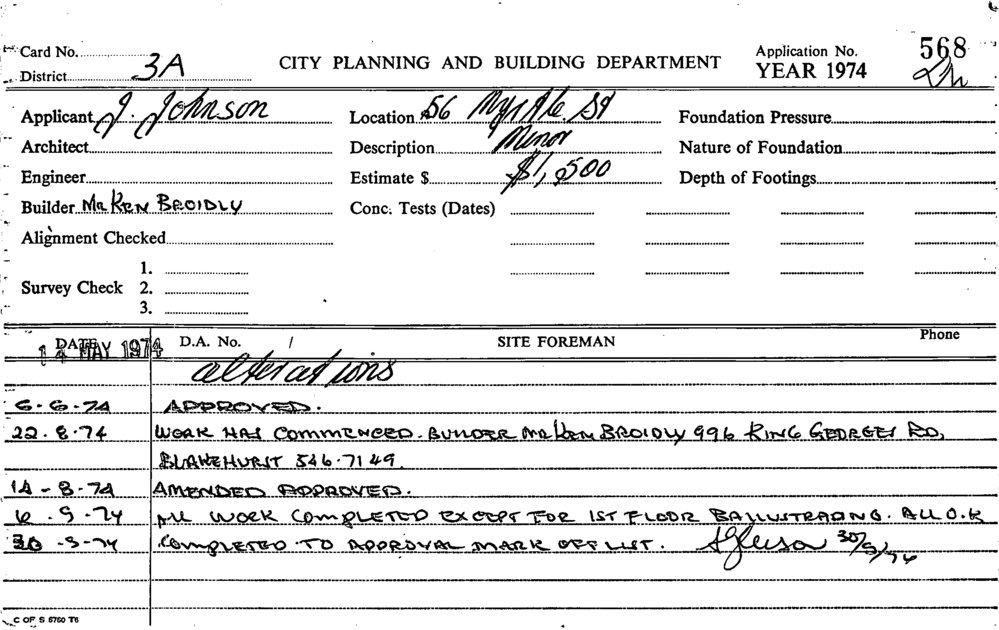 Card No. Application No. 568
District 3A CITY PLANNING AND BUILDING DEPARTMENT YEAR 1974
Applicant J. Johnson Location 56 Myrtle St Foundation Pressure
Architect Description Minor Nature of Foundation
Engineer Estimate $ $1,500 Depth of Footings
Builder MR KEN BROIDLY Conc. Tests (Dates)
Alignment Checked
1.
Survey Check 2.
3.
DATE 14 MAY 1974 D.A. No. / SITE FOREMAN Phone
alterations
6-6-74 APPROVED.
22.8.74 WORK HAS COMMENCED. BUILDER MR KEN BROIDLY 996 KING GEORGES RD,
BLAKEHURST 546.7149.
14-8-74 AMENDED APPROVED.
.9.74 ALL WORK COMPLETED EXCEPT FOR 1ST FLOOR BALLUSTRADING. ALL O.K
30.9.74 COMPLETED TO APPROVAL MARK OFF LIST. 30/9/74
C OF S 5760 T6